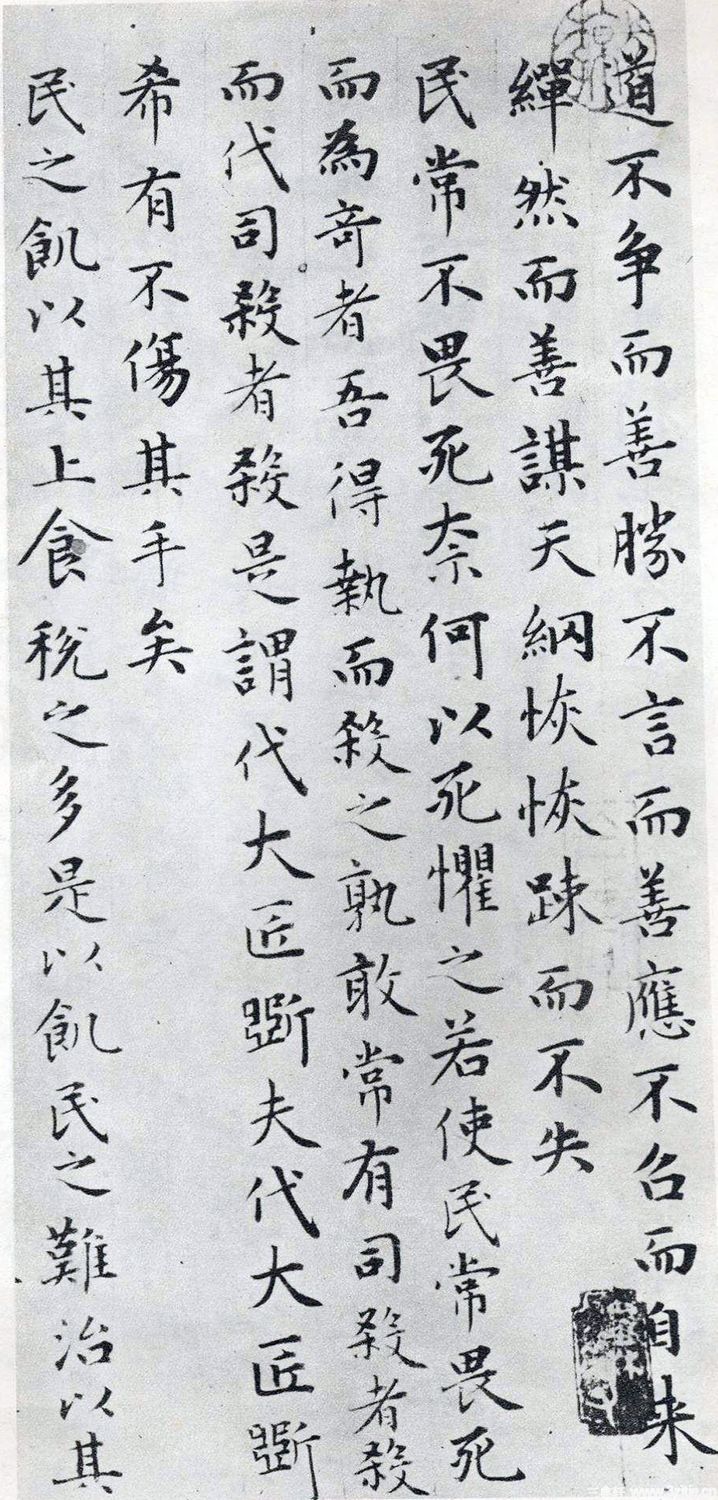 道不争而善勝不言而善應不召而自来
繟然而善謀天綱恢恢踈而不失
民常不畏死奈何以死懼之若使民常畏死
而為竒者吾得執而殺之孰敢常有司殺者殺
而代司殺者殺是謂代大匠斲夫代大匠斲
希有不傷其手矣
民之飢以其上食稅之多是以飢民之難治以其